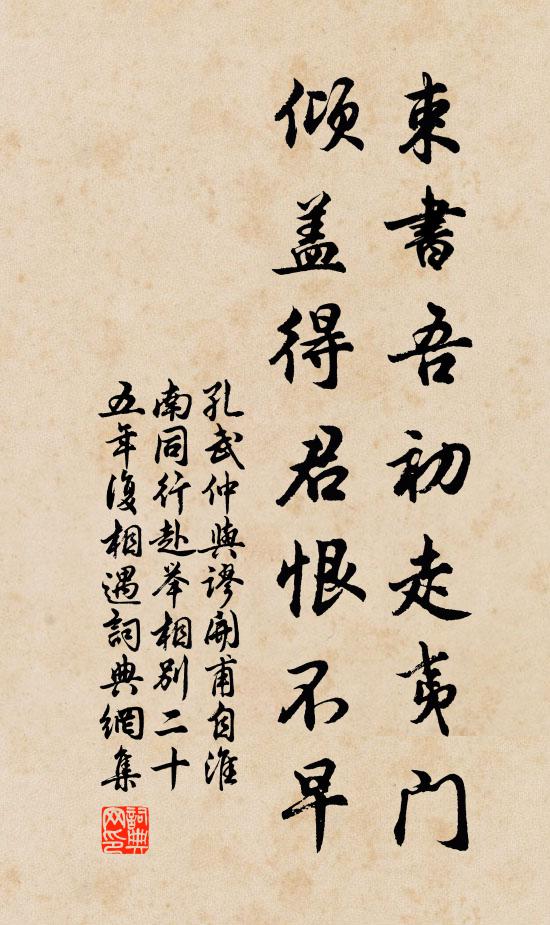 束书吾初走夷门
倾盖得君恨不早
孔武仲与谬开甫自淮
南同行赴举相别二十
五年复相遇词典网集
词典网印